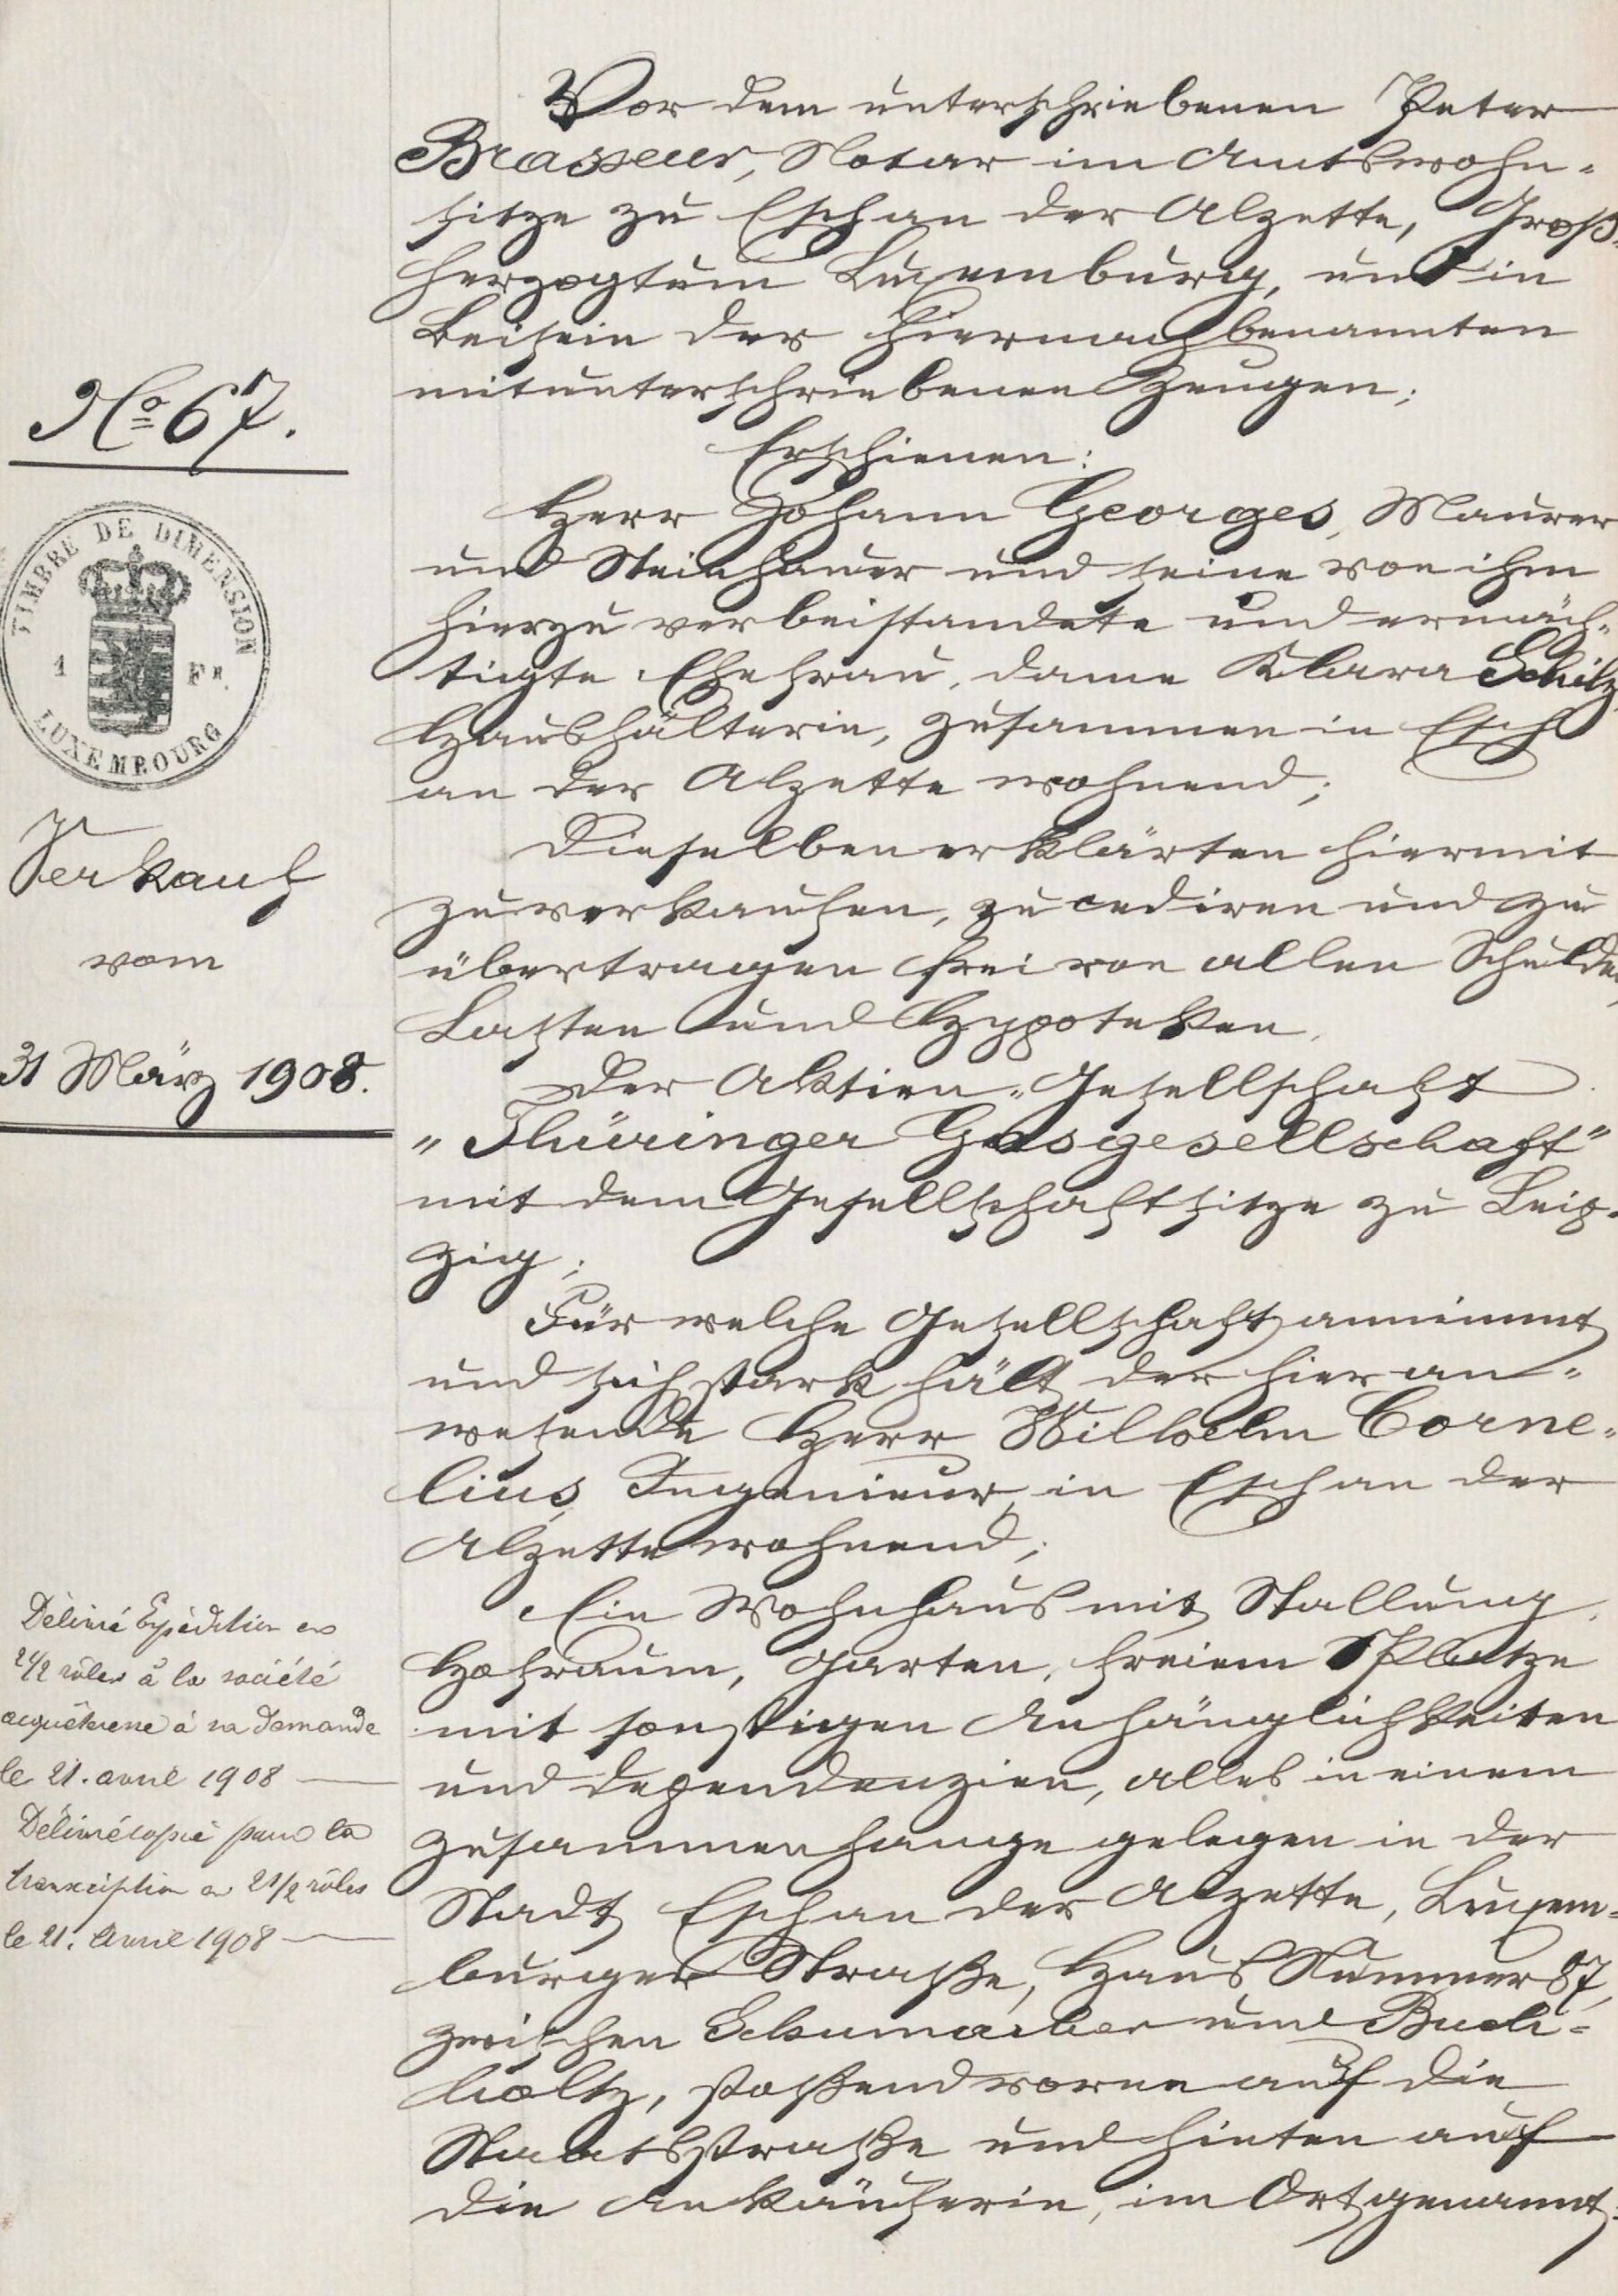 Vor dem unterschriebenen Peter
Brasseur, Notar im Amtswohn=
sitze zu Esch an der Alzette, Groß=
herzogtum Luxemburg, und in
Beisein der hiernachbenannten
mitunterschriebenen Zeugen;
Erschienen:
Herr Johann Georges, Maurer
und Steinhauer und seine von ihm
hierzu verbeistandete und ermäch=
tigte Ehefrau, dame Klara Schilz,
Haushälterin, zusammen in Esch
an der Alzette wohnend;
Dieselben erklärten hiermit
zu verkaufen, zu cediren und zu
übertragen frei von allen Schulden,
Lasten und Hypoteken,
Der Aktien=Gesellschaft
"Thüringer Gasgesellschaft"
mit dem Gesellschaftsitze zu Leip=
zig;
Für welche Gesellschaft annimmt
und sich stark hält der hier an=
wesende Herr Wilhelm Corne=
lius, Ingenieur, in Esch an der
Alzette wohnend;
Ein Wohnhaus mit Stallung,
Hofraum, Garten, freiem Platze
mit sonstigen Anhänglichkeiten
und Dependenzien, alles in einem
Zusammenhange gelegen in der
Stadt Esch an der Alzette, Luxem=
burger Straße, Haus Nummer 87,
zwischen Schumacher und Buch=
holtz, stoßend vorne auf die
Staatsstraße und hinten auf
die Ankäuferin, im Ort genannt:
No 67.
TIMBRE DE DIMENSION
1 FR.
LUXEMBOURG
Verkauf
vom
31 März 1908.
Délivré Expédition en
2 1/2 rôles à la société
acquéreuse à sa demande
le 21. avril 1908
Délivré copie pour la
transcription en 2 1/2 rôles
le 21. Avril 1908